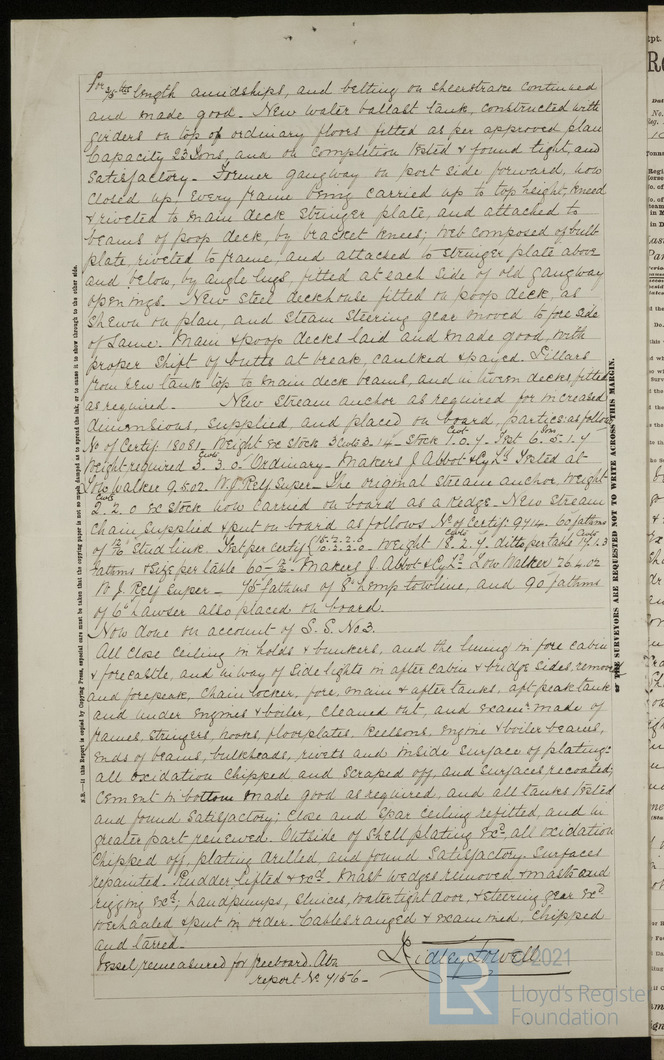 For 3/5ths length amidships, and belting on sheerstrake continued
and made good. New water ballast tank, constructed with
girders on top of ordinary floors fitted as per approved plan
Capacity 23 Tons, and on completion tested & found tight, and
Satisfactory. Former gangway on port side forward, now
closed up, every frame being carried up to top height, kneed
& riveted to main deck stringer plate, and attached to
beams of poop deck, by bracket knees; web composed of bulb
plate, riveted to frame, and attached to stringer plate above
and below, by angle lugs, fitted at each side of old gangway
openings. New steel deckhouse fitted on poop deck, as
shewn on plan, and steam steering gear moved to fore side
of same. Main & poop decks laid and made good, with
proper shift of butts at break, caulked & payed. Pillars
from new tank top to main deck beams, and in tween decks, fitted
as required. New Stream anchor as required for increased
dimensions, supplied and placed on board, partics: as follow
No of Certif: 18081. Weight ex stock 3 Cwts 3. 14 Stock 1. 0. 7. Test 6. 5. 1. 7
Weight required 3. 3. 0. Ordinary. Makers J Abbot & Cy Ld Tested at
Low Walker 9.5.02. W.J. Relf Super. The original stream anchor, weight
2. 2. 0 ex stock now carried on board as a Kedge. New Stream
Chain supplied & put on board as follows No of Certif: 9714. 60 fathoms
of Stud link. Test per certif Weight 18. 2. 7. ditto per table
fathoms & size per table 60 Makers J Abbot & Cy Ld Low Walker 26.4.02
W J. Relf Super - 75 fathoms of 8" hemp towline, and 90 fathoms
of 6" hawser also placed on board.
Now done on account of S.S. No 3.
All close ceiling in holds & bunkers, and the lining in fore cabin
& forecastle, and in way of side lights in after cabin & bridge sides, remove
and forepeak, chain locker, fore, main & after tanks, aft peak tank
and under engines & boiler, cleaned out, and Exam made of
frames, stringers, hooks, floorplates, keelsons, engine & boiler beams,
ends of beams, bulkheads, rivets and inside surface of plating:
all oxidation chipped and scraped off, and surfaces recoated;
Cement in bottom made good as required, and all tanks tested
and found satisfactory; close and spar ceiling refitted, and in
greater part renewed. Outside of shell plating &c, all oxidation
chipped off, plating drilled and found satisfactory. Surfaces
repainted. Rudder lifted & exd. Mast wedges removed & masts and
rigging exd; handpumps, sluices, watertight door, & steering gear exd
overhauled & put in order. Cables ranged & examined, chipped
and tarred.
Vessel remeasured for freeboard.
report No 7156
Ridley Lowell
N.B.—If this Report is copied by Copying Press, especial care must be taken that the copying paper is not so much damped as to spread the ink, or to cause it to show through to the other side.
THE SURVEYORS ARE REQUESTED NOT TO WRITE ACROSS THIS MARGIN.
© 2021
LR
Lloyd's Register
Foundation